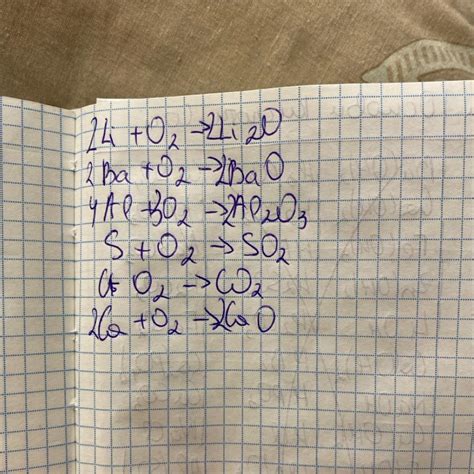 2Li + O₂ → 2Li₂O
2Ba + O₂ → 2BaO
4Al + 3O₂ → 2Al₂O₃
S + O₂ → SO₂
C + O₂ → CO₂
2Ca + O₂ → 2CaO